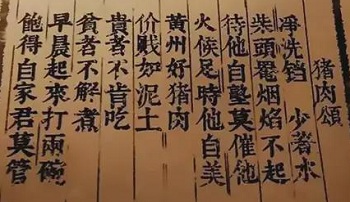 猪肉頌
淨洗铛 少著水
柴頭罨烟焰不起
待他自塾莫催他
火候足時他自美
黄州好猪肉
价贱如泥土
貴者不肯吃
貧者不解煮
早晨起來打兩碗
飽得自家君莫管